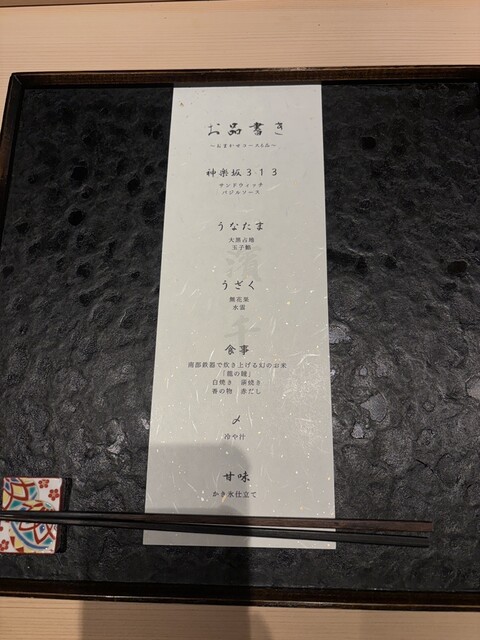 お品書き
～おまかせコース6品～
神楽坂313
サンドウィッチ
バジルソース
うなたま
大黒占地
玉子麩
うざく
無花果
水雲
食事
南部鉄器で炊き上げる幻のお米
「龍の瞳」
白焼き 蒲焼き
香の物 赤だし
〆
冷や汁
甘味
かき氷仕立て